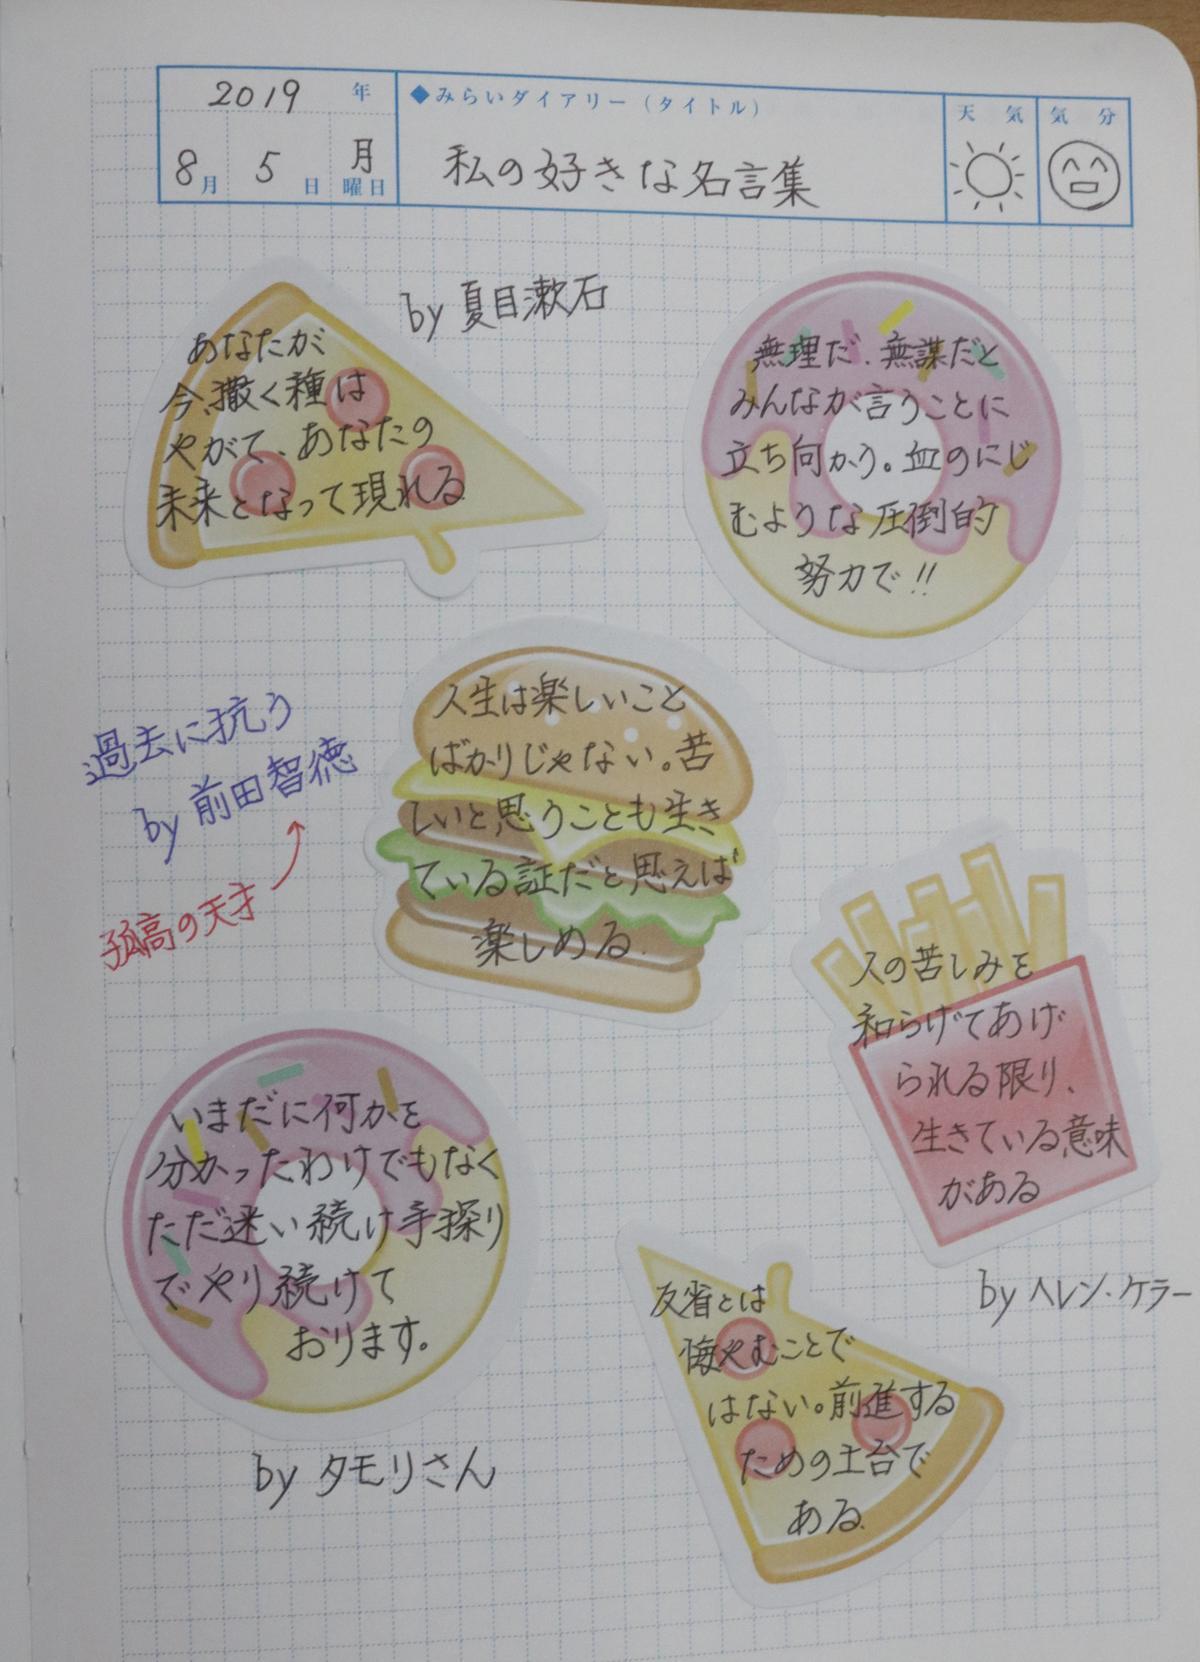 2019 年
8月 5日 月曜日
◆みらいダイアリー（タイトル）
私の好きな名言集
天気
気分
by 夏目漱石
あなたが
今、撒く種は
やがて、あなたの
未来となって現れる
無理だ、無謀だと
みんなが言うことに
立ち向かう。血のにじ
むような圧倒的
努力で!!
過去に抗う
by 前田智徳
孤高の天才
人生は楽しいこと
ばかりじゃない。苦
しいと思うことも生き
ている証だと思えば
楽しめる.
人の苦しみを
和らげてあげ
られる限り、
生きている意味
がある
by ヘレン・ケラー
いまだに何かを
分かったわけでもなく
ただ迷い続け手探り
でやり続けて
おります。
by タモリさん
反省とは
悔やむことで
はない。前進する
ための土台で
ある.